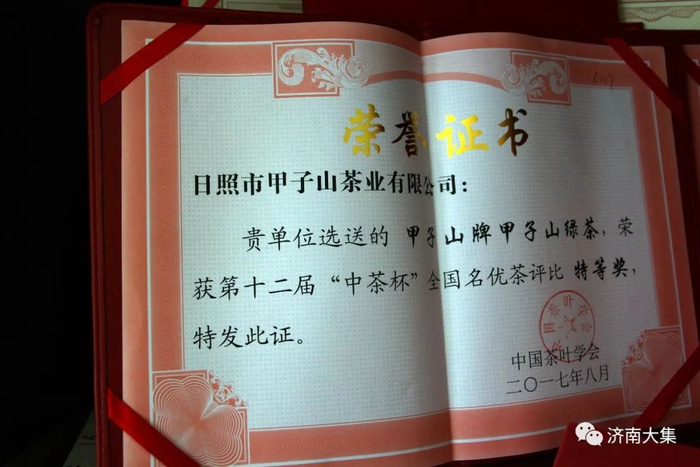 荣誉证书
日照市甲子山茶业有限公司：
贵单位选送的 甲子山牌甲子山绿茶，荣
获第十二届“中茶杯”全国名优茶评比 特等奖，
特发此证。
中国茶叶学会
二〇一七年八月
济南大集